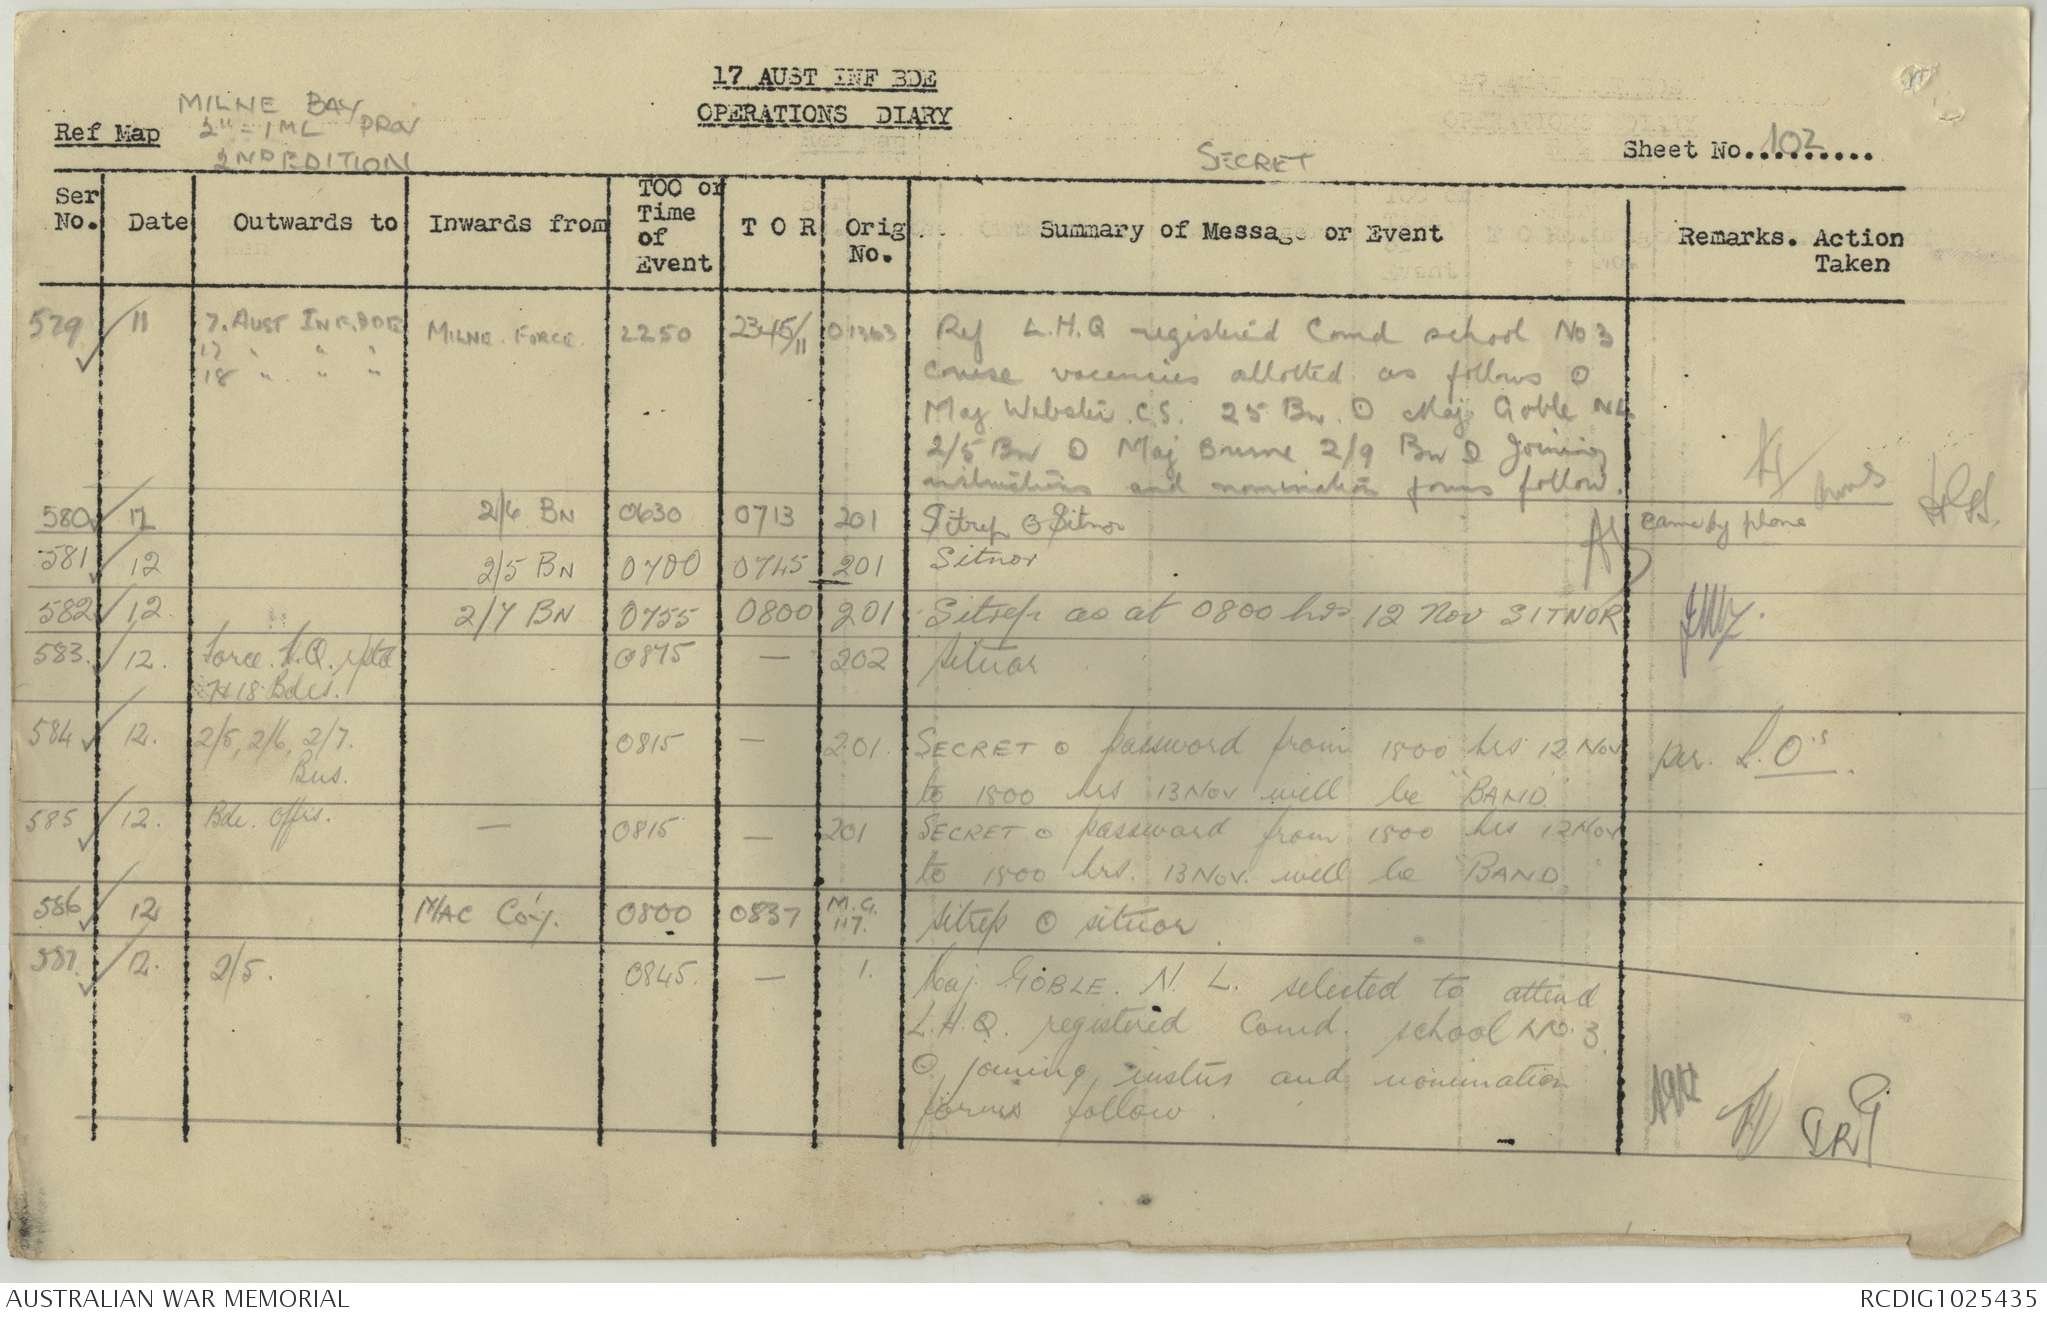 17 AUST INF BDE
OPERATIONS DIARY
MILNE BAY
2" = 1 ML PROV
2ND EDITION
Ref Map
SECRET
Sheet No. 102
Ser No. Date Outwards to Inwards from TOO or Time of Event T O R Orig No. Summary of Message or Event Remarks. Action Taken
579 11 7. AUST INF. BDE MILNE. FORCE. 2250 2345/11 01363 Ref L.H.Q registered Comd school No 3
17 " " "
18 " " "
course vacancies allotted as follows ⊙
Maj Webster. C.S. 25 Bn. ⊙ Maj Goble NL
2/5 Bn ⊙ Maj Bourne 2/9 Bn ⊙ Joining
instructions and nomination forms follow.
580 12 2/6 BN 0630 0713 201 Sitrep ⊙ Sitnor came by phone
581 12 2/5 BN 0700 0745 201 Sitnor
582 12 2/7 BN 0755 0800 201 Sitrep as at 0800 hrs 12 Nov SITNOR
583. 12. Force. H.Q. rptd 0875 — 202 Sitnor
7 & 18 Bdes.
584 12. 2/5, 2/6, 2/7. 0815 — 201. SECRET ⊙ password from 1800 hrs 12 Nov per. L.O's.
Bns. to 1800 hrs 13 Nov will be "BAND"
585 12. Bde. Offrs. — 0815 — 201 SECRET ⊙ password from 1800 hrs 12 Nov
to 1800 hrs. 13 Nov. will be "BAND"
586 12 M/AC Co'y. 0800 0837 M.G. 117. Sitrep ⊙ sitnor.
587. 12. 2/5. 0845. — 1. Maj. GOBLE. N. L. selected to attend
L.H.Q. registered Comd. school No. 3
⊙ joining instns and nomination
forms follow.
AUSTRALIAN WAR MEMORIAL
RCDIG1025435